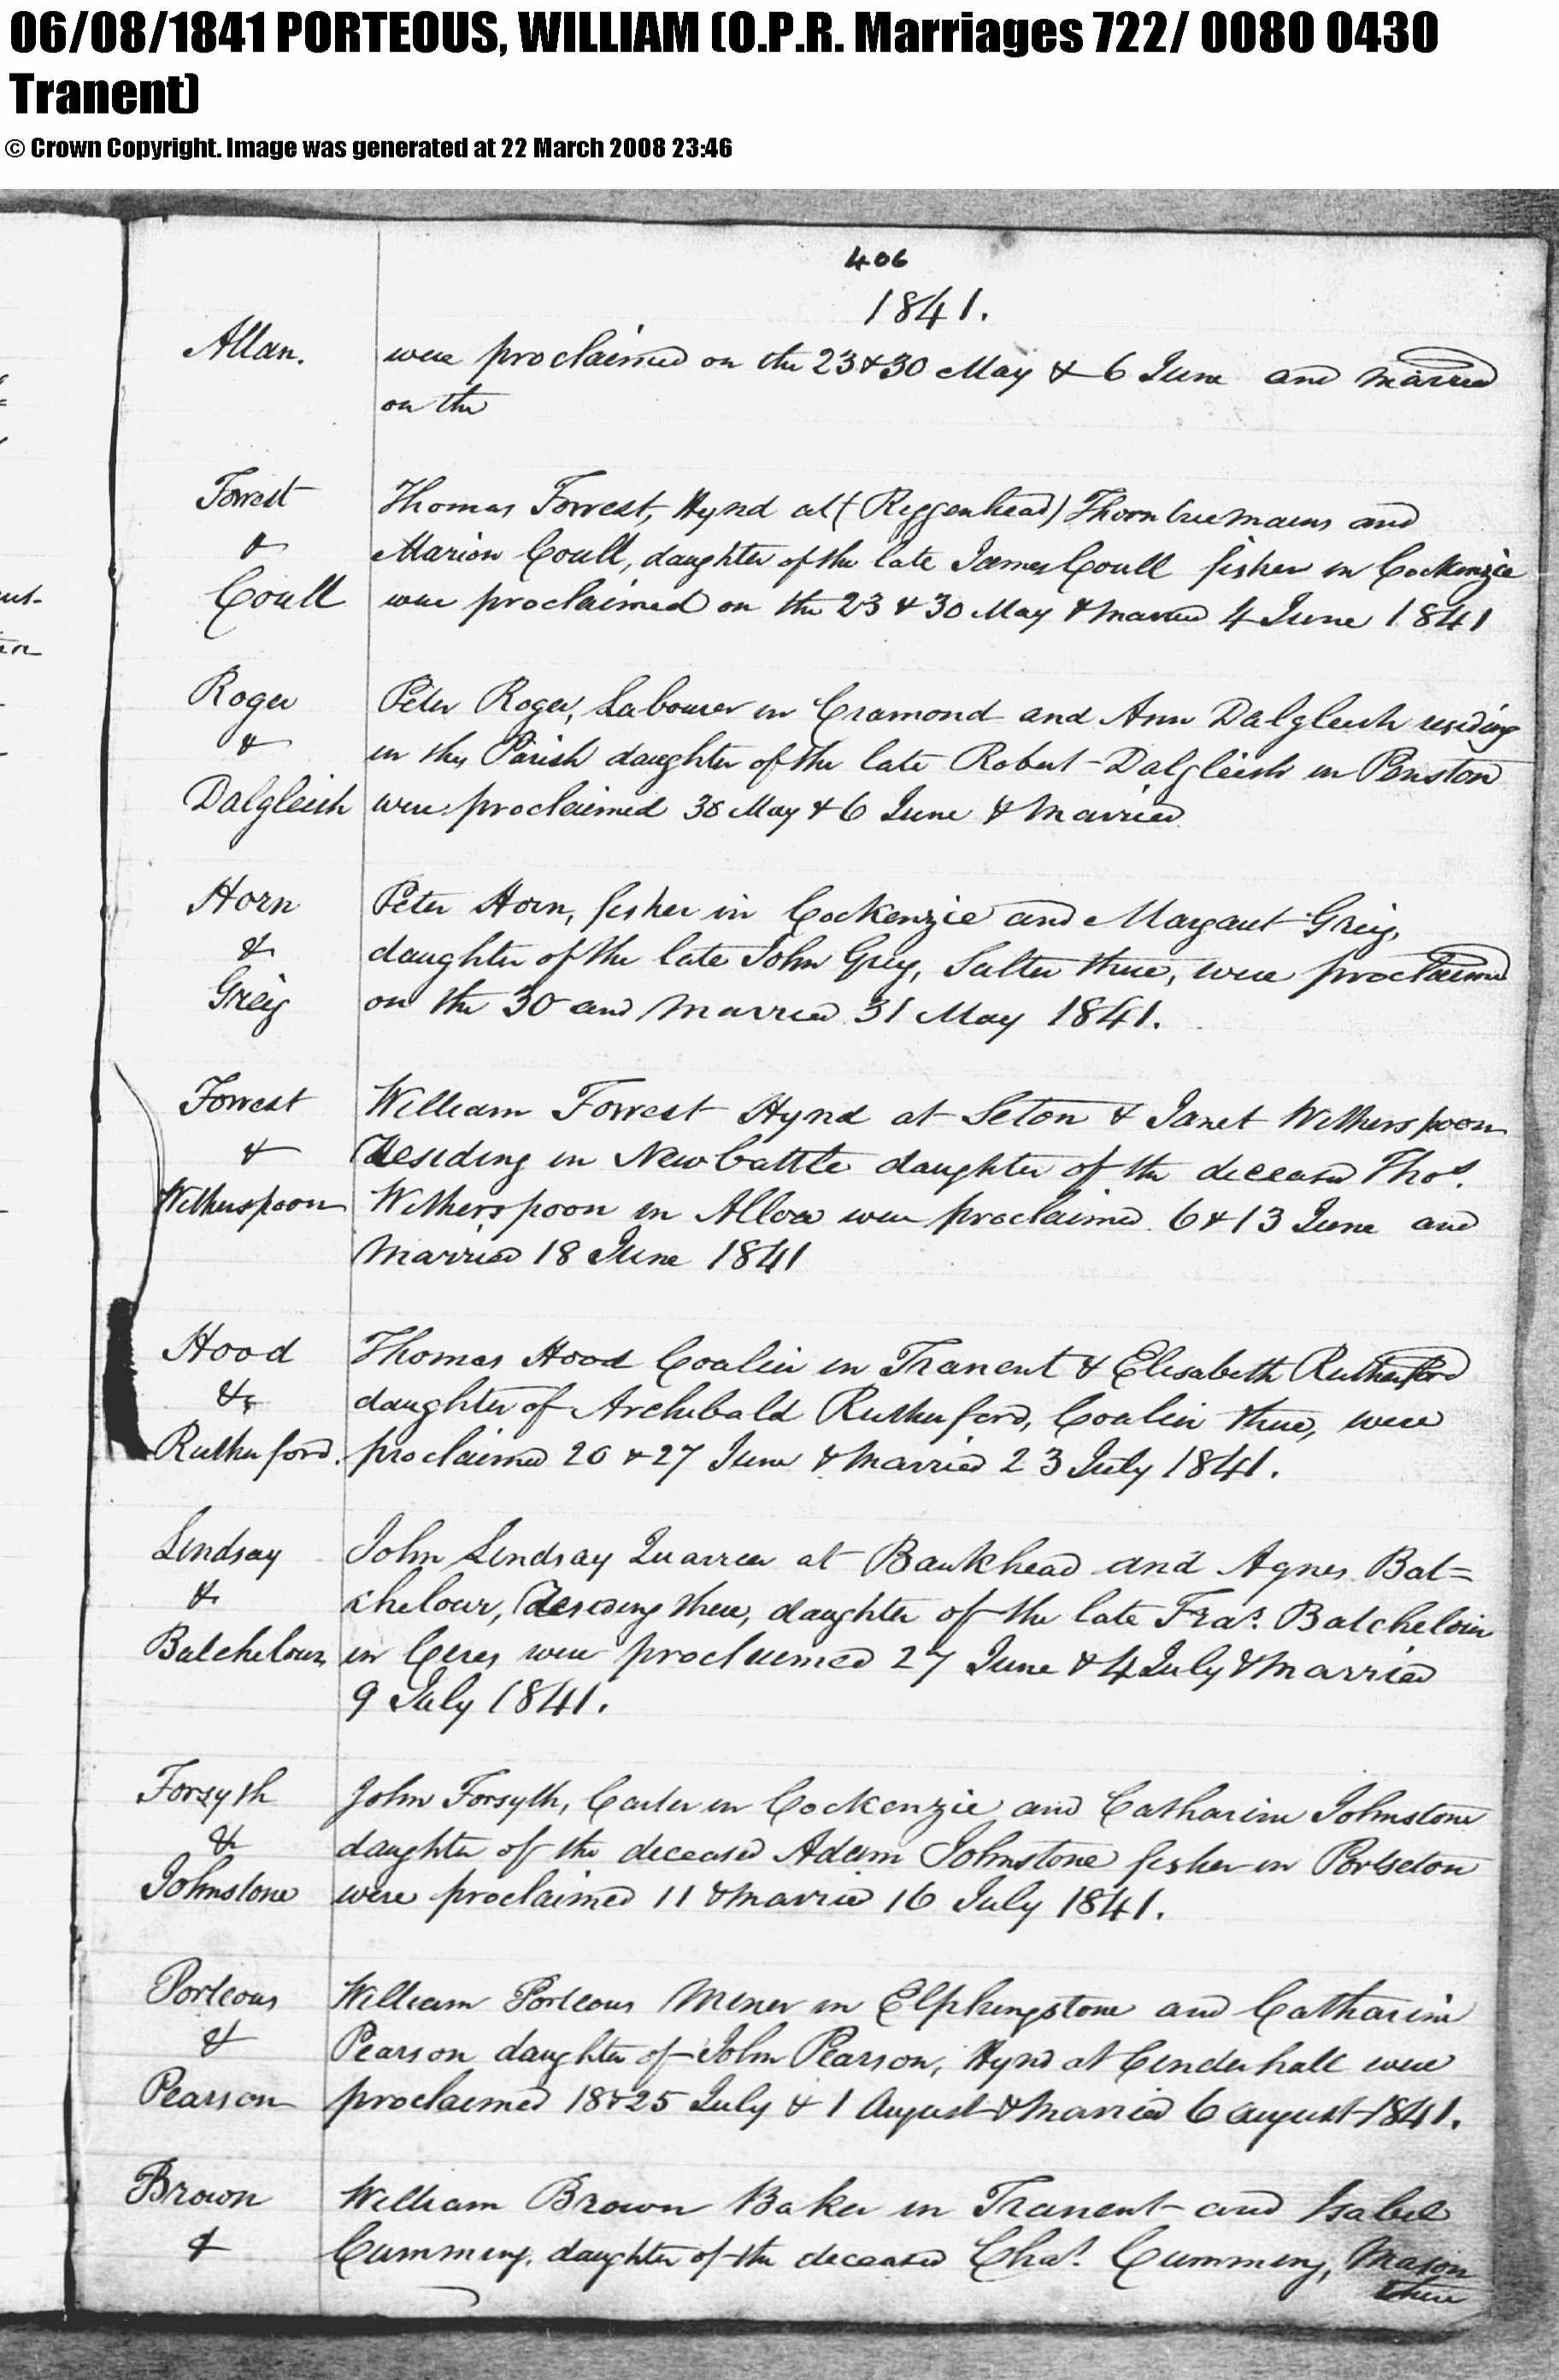 06/08/1841 PORTEOUS, WILLIAM (O.P.R. Marriages 722/ 0080 0430
Tranent)
© Crown Copyright. Image was generated at 22 March 2008 23:46
406
1841.
Allan. were proclaimed on the 23 & 30 May & 6 June and married
on the
Forrest Thomas Forrest, Hynd at (Riggenhead) Thorntreemains and
& Marion Coull, daughter of the late James Coull fisher in Cockenzie
Coull were proclaimed on the 23 & 30 May & married 4 June 1841
Roger Peter Roger, Labourer in Cramond and Ann Dalgleish residing
& in this Parish daughter of the late Robert Dalgleish in Penston
Dalgleish were proclaimed 30 May & 6 June & Married
Horn Peter Horn, fisher in Cockenzie and Margaret Greig,
& daughter of the late John Greig, Salter there, were proclaimed
Greig on the 30 and Married 31 May 1841.
Forrest William Forrest Hynd at Seton & Janet Witherspoon
& Residing in Newbattle daughter of the deceased Thos.
Witherspoon Witherspoon in Alloa were proclaimed 6 & 13 June and
Married 18 June 1841
Hood Thomas Hood Coalier in Tranent & Elisabeth Rutherford
& daughter of Archibald Rutherford, Coalier there, were
Rutherford. proclaimed 20 & 27 June & Married 23 July 1841.
Lindsay John Lindsay Quarrier at Bankhead and Agnes Bat=
& chelour, Residing there, daughter of the late Fras. Batchelour
Batchelour in Ceres were proclaimed 27 June & 4 July & Married
9 July 1841.
Forsyth John Forsyth, Carter in Cockenzie and Catharine Johnstone
& daughter of the deceased Adam Johnstone fisher in Portseton
Johnstone were proclaimed 11 & Married 16 July 1841.
Porteous William Porteous Miner in Elphingstone and Catharine
& Pearson daughter of John Pearson, Hynd at Cinderhall were
Pearson proclaimed 18 & 25 July & 1 August & Married 6 August 1841.
Brown William Brown Baker in Tranent and Isabel
& Cumming, daughter of the deceased Chas. Cumming, Mason
there